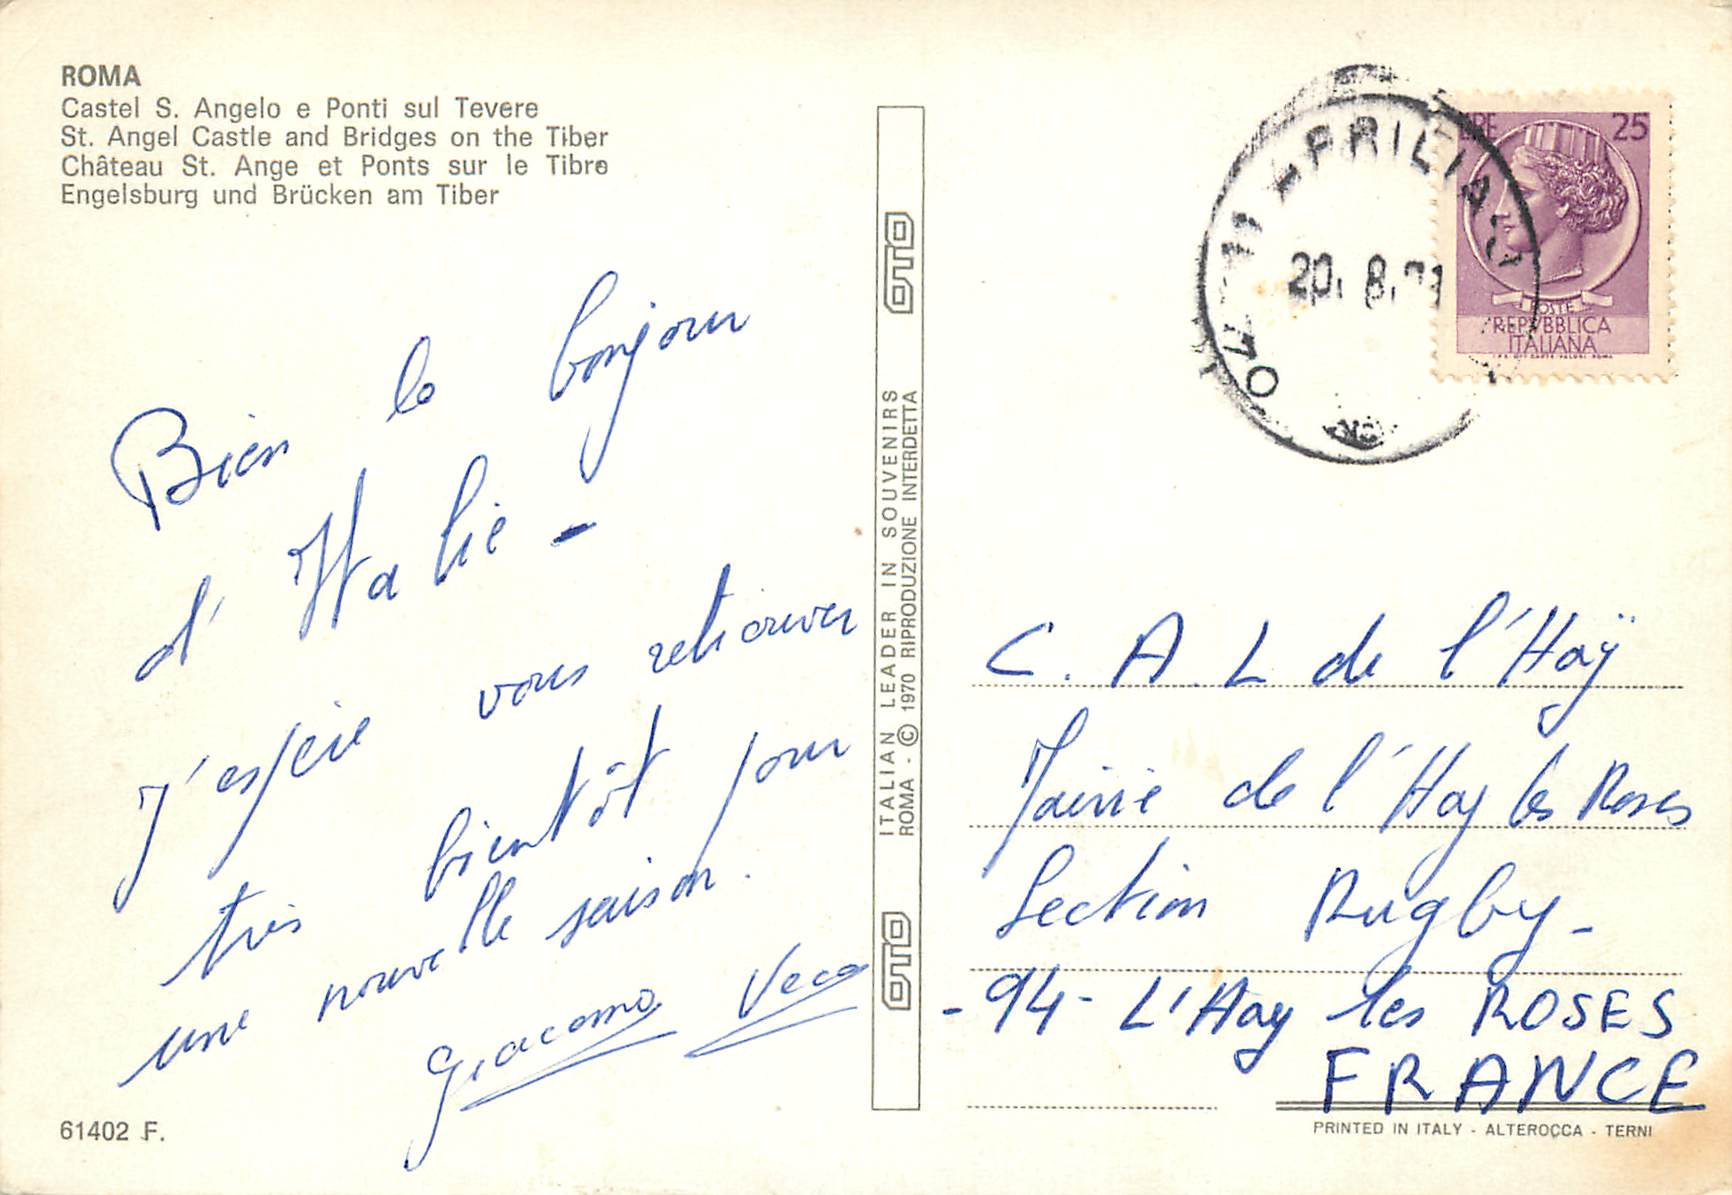 ROMA
Castel S. Angelo e Ponti sul Tevere
St. Angel Castle and Bridges on the Tiber
Château St. Ange et Ponts sur le Tibre
Engelsburg und Brücken am Tiber
Bien le bonjour
d'Italie -
J'espère vous retrouver
très bientôt pour
une nouvelle saison.
Giacomo Veca
61402 F.
OTO
ITALIAN LEADER IN SOUVENIRS
ROMA - © 1970 RIPRODUZIONE INTERDETTA
OTO
APRILIA
20. 8.
LIRE 25
POSTE
REPVBBLICA
ITALIANA
I.P.S. OFF. CARTE-VALORI ROMA
C.A.L de l'Haÿ
Mairie de l'Hay les Roses
Section Rugby -
- 94 - L'Hay les ROSES
FRANCE
PRINTED IN ITALY - ALTEROCCA - TERNI